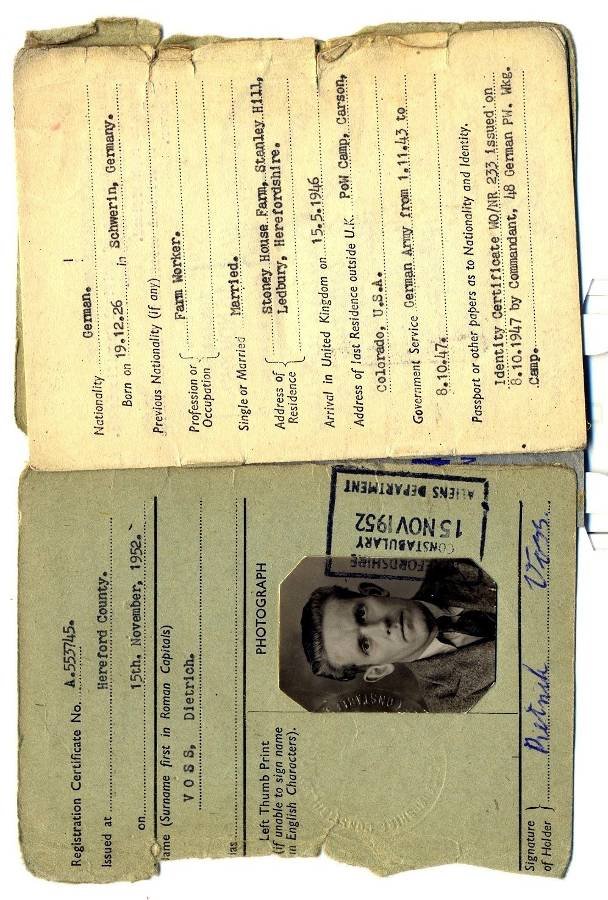 Registration Certificate No. A.553745.
Issued at Hereford County.
on 15th. November, 1952.
ame (Surname first in Roman Capitals)
VOSS, Dietrich.
ias
Left Thumb Print
(if unable to sign name
in English Characters).
PHOTOGRAPH
EFORDSHIRE
CONSTABULARY
15 NOV 1952
ALIENS DEPARTMENT
Signature
of Holder
Dietrich Voss.
Nationality German.
Born on 19.12.26 in Schwerin, Germany.
Previous Nationality (if any)
Profession or
Occupation
Farm Worker.
Single or Married Married.
Address of
Residence
Stoney House Farm, Stanley Hill,
Ledbury, Herefordshire.
Arrival in United Kingdom on 15.5.1946
Address of last Residence outside U.K. PoW Camp, Carson,
Colorado, U.S.A.
Government Service German Army from 1.11.43 to
8.10.47.
Passport or other papers as to Nationality and Identity.
Identity Certificate WO/NR 233 issued on
8.10.1947 by Commandant, 48 German PW. Wkg.
Camp.